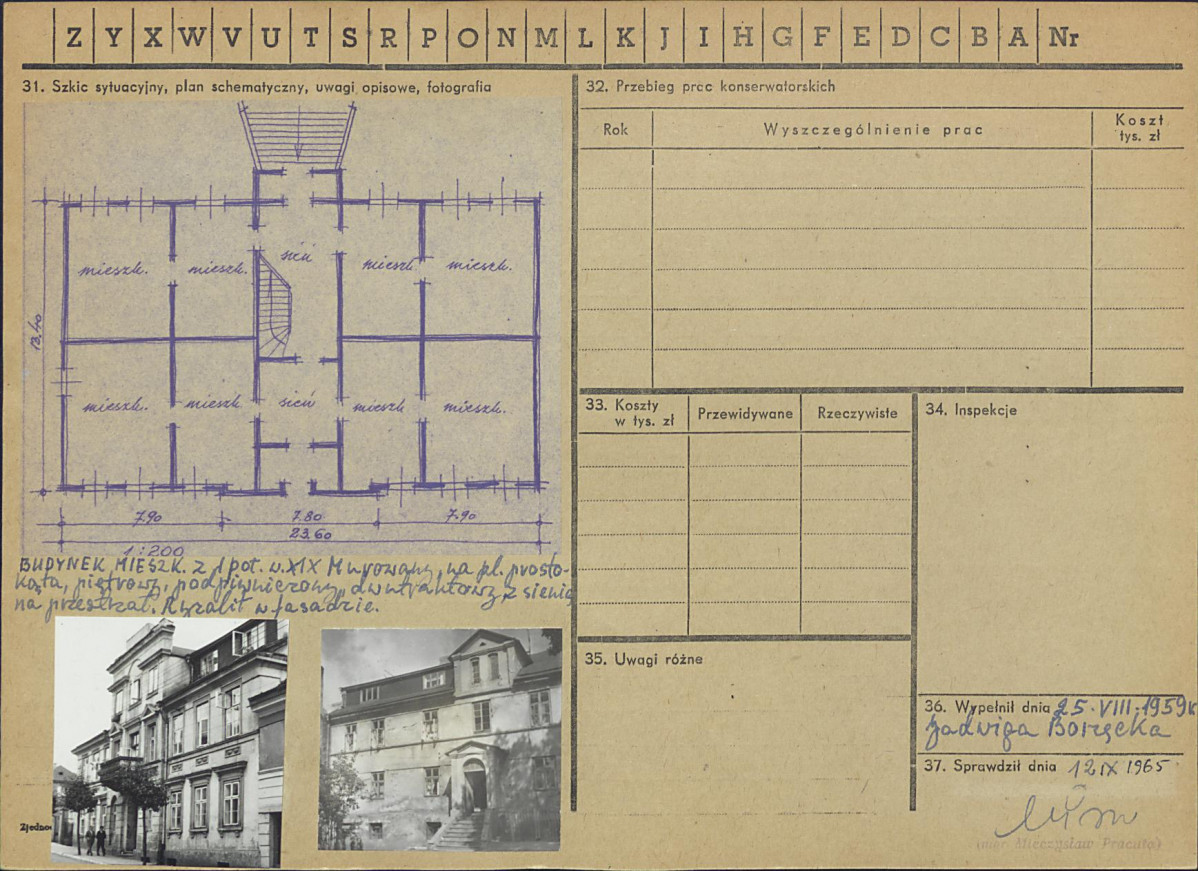 Z Y X W V U T S R P O N M L K J I H G F E D C B A Nr
31. Szkic sytuacyjny, plan schematyczny, uwagi opisowe, fotografia
mieszk. mieszk. sień mieszk. mieszk.
13.40
mieszk. mieszk sień mieszk mieszk.
7.90 7.80 7.90
23.60
1:200
BUDYNEK MIESZK. z I poł. w. XIX Murowany, na pl. prosto-
kąta, piętrowy, podpiwniczony, dwutraktowy, z sienią
na przestrzał. Ryzalit w fasadzie.
Zjedno
32. Przebieg prac konserwatorskich
Rok Wyszczególnienie prac Koszt tys. zł
33. Koszty w tys. zł Przewidywane Rzeczywiste
34. Inspekcje
35. Uwagi różne
36. Wypełnił dnia 25.VIII.1959 r
Jadwiga Borzęcka
37. Sprawdził dnia 12 IX 1965
(mgr Mieczysław Pracuta)